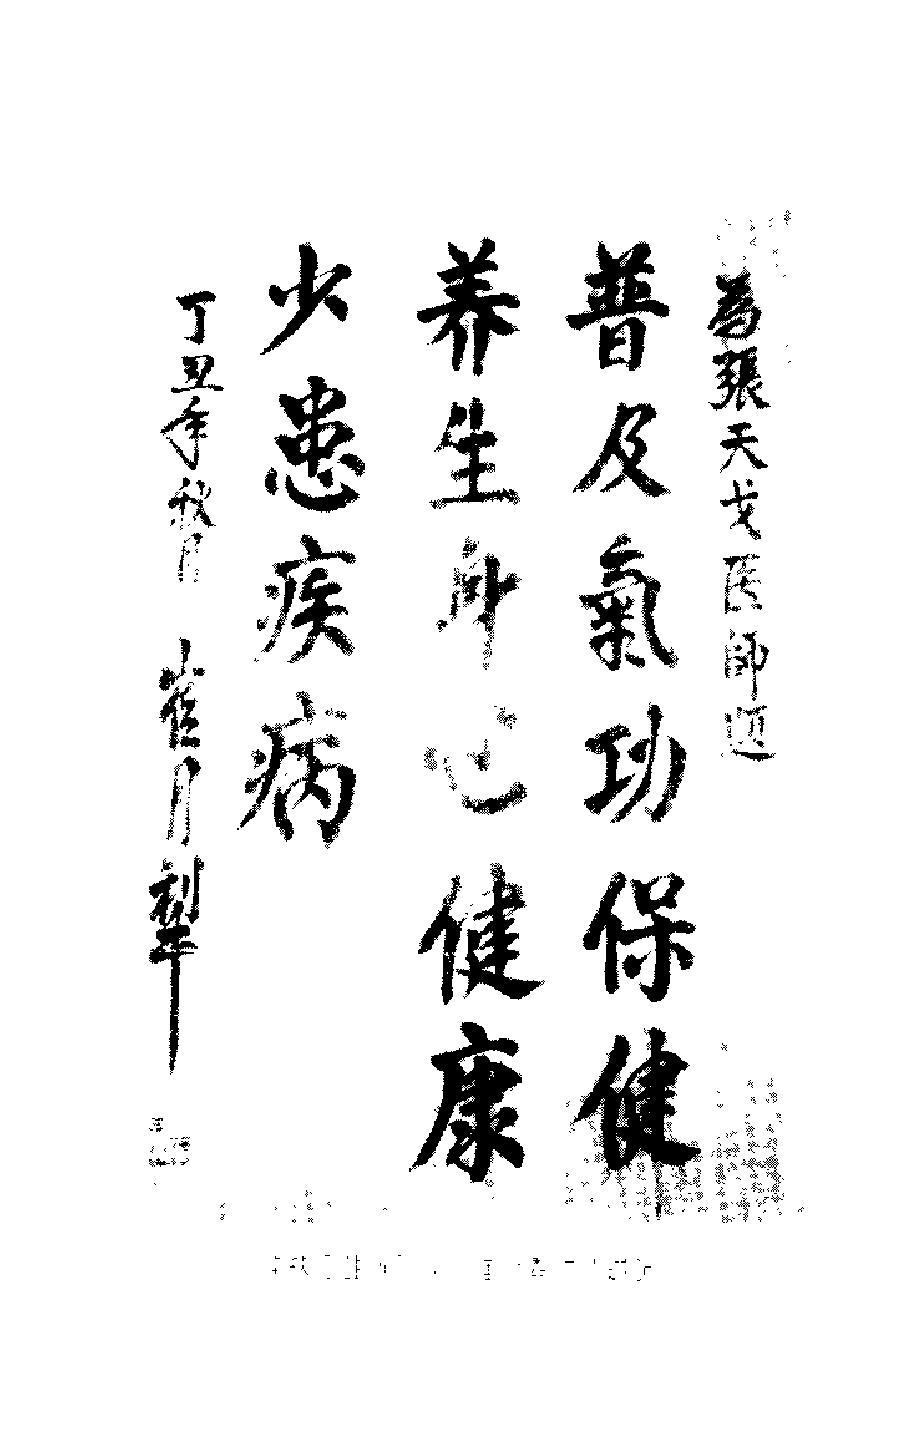 為張天戈医師題
普及氣功保健
养生身心健康
少患疾病
丁丑年秋月
崔月犁